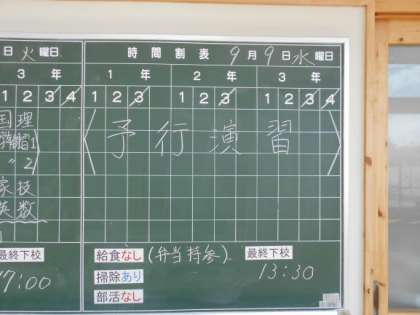 日 火 曜日
3 年
1 2 3 4
国理
〃 2
家技
英数
最終下校
17:00
時間割表 9月9日水曜日
1 年 2 年 3 年
1 2 3 1 2 3 1 2 3 4
予行演習
給食なし (弁当持参)
掃除あり
部活なし
最終下校
13:30